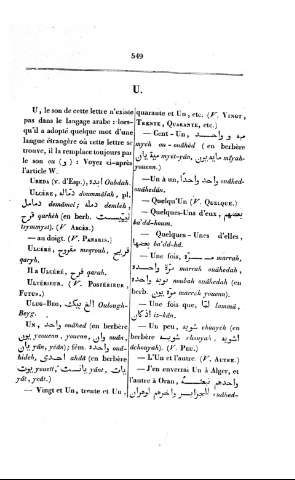 549
U.
U, le son de cette lettre n'existe
pas dans le langage arabe : lors-
qu'il a adopté quelque mot d'une
langue étrangère où cette lettre se
trouve, il la remplace toujours par
le son ou (و) : Voyez ci-après
l'article W.
UBEDA (v. d'Esp.), ابده Oubdah.
ULCÈRE, دمّالة doummâlah, pl.
دمامل demâmel; دملة demleh,
قرح qarhèh (en berb.
tiyummyst). (V. ABCÈS.)
— au doigt. (V. PANARIS.)
ULCÉRÉ, مقروح meqrouh, قريح
qaryh.
Il a ULCÉRÉ, قرح qarah.
ULTÉRIEUR. (V. POSTÉRIEUR,
FUTUR.)
ULUG-BEG, الغ بيك Oulough-
Beyg.
UN, واحد ouâhed (en berbère
يون youenn, youenn, وان ouân,
يان yân, yèân); fém. واحدة ouâ-
hideh, احدى ahdä (en berbère
يوت youett, يانت yânt, يات
yât, yeât.)
— Vingt et Un, trente et Un,
quarante et Un, etc. (V. VINGT,
TRENTE, QUARANTE, etc.)
— Cent-Un, مية و واحد
myeh ou-ouâhed (en berbère
مية يان myet-yân, مايه يون mâyah-
youenn.)
— Un à un, واحد واحدا ouâhed-
ouâhedân.
— Quelqu'Un (V. QUELQUE.)
— Quelques-Uns d'eux, بعضهم
ba'dd-houm.
— Quelques-Unes d'elles,
بعضها ba'dd-hâ.
— Une fois, مرة marrah,
مرة واحدة marrah ouâhedah,
نوبة واحدة noubah ouâhedah (en
berb. مرة يون marrèh youenn).
— Une fois que, لمّا lammâ,
اذ كان iz-kân.
— Un peu, شويه chouyeh (en
berbère اشويه chouyèh,
âchouyah). (V. PEU.)
— L'Un et l'autre. (V. AUTRE.)
— J'en enverrai Un à Alger, et
l'autre à Oran, نبعث واحدهم
للجزاير واخرهم لوهران ouâhed-